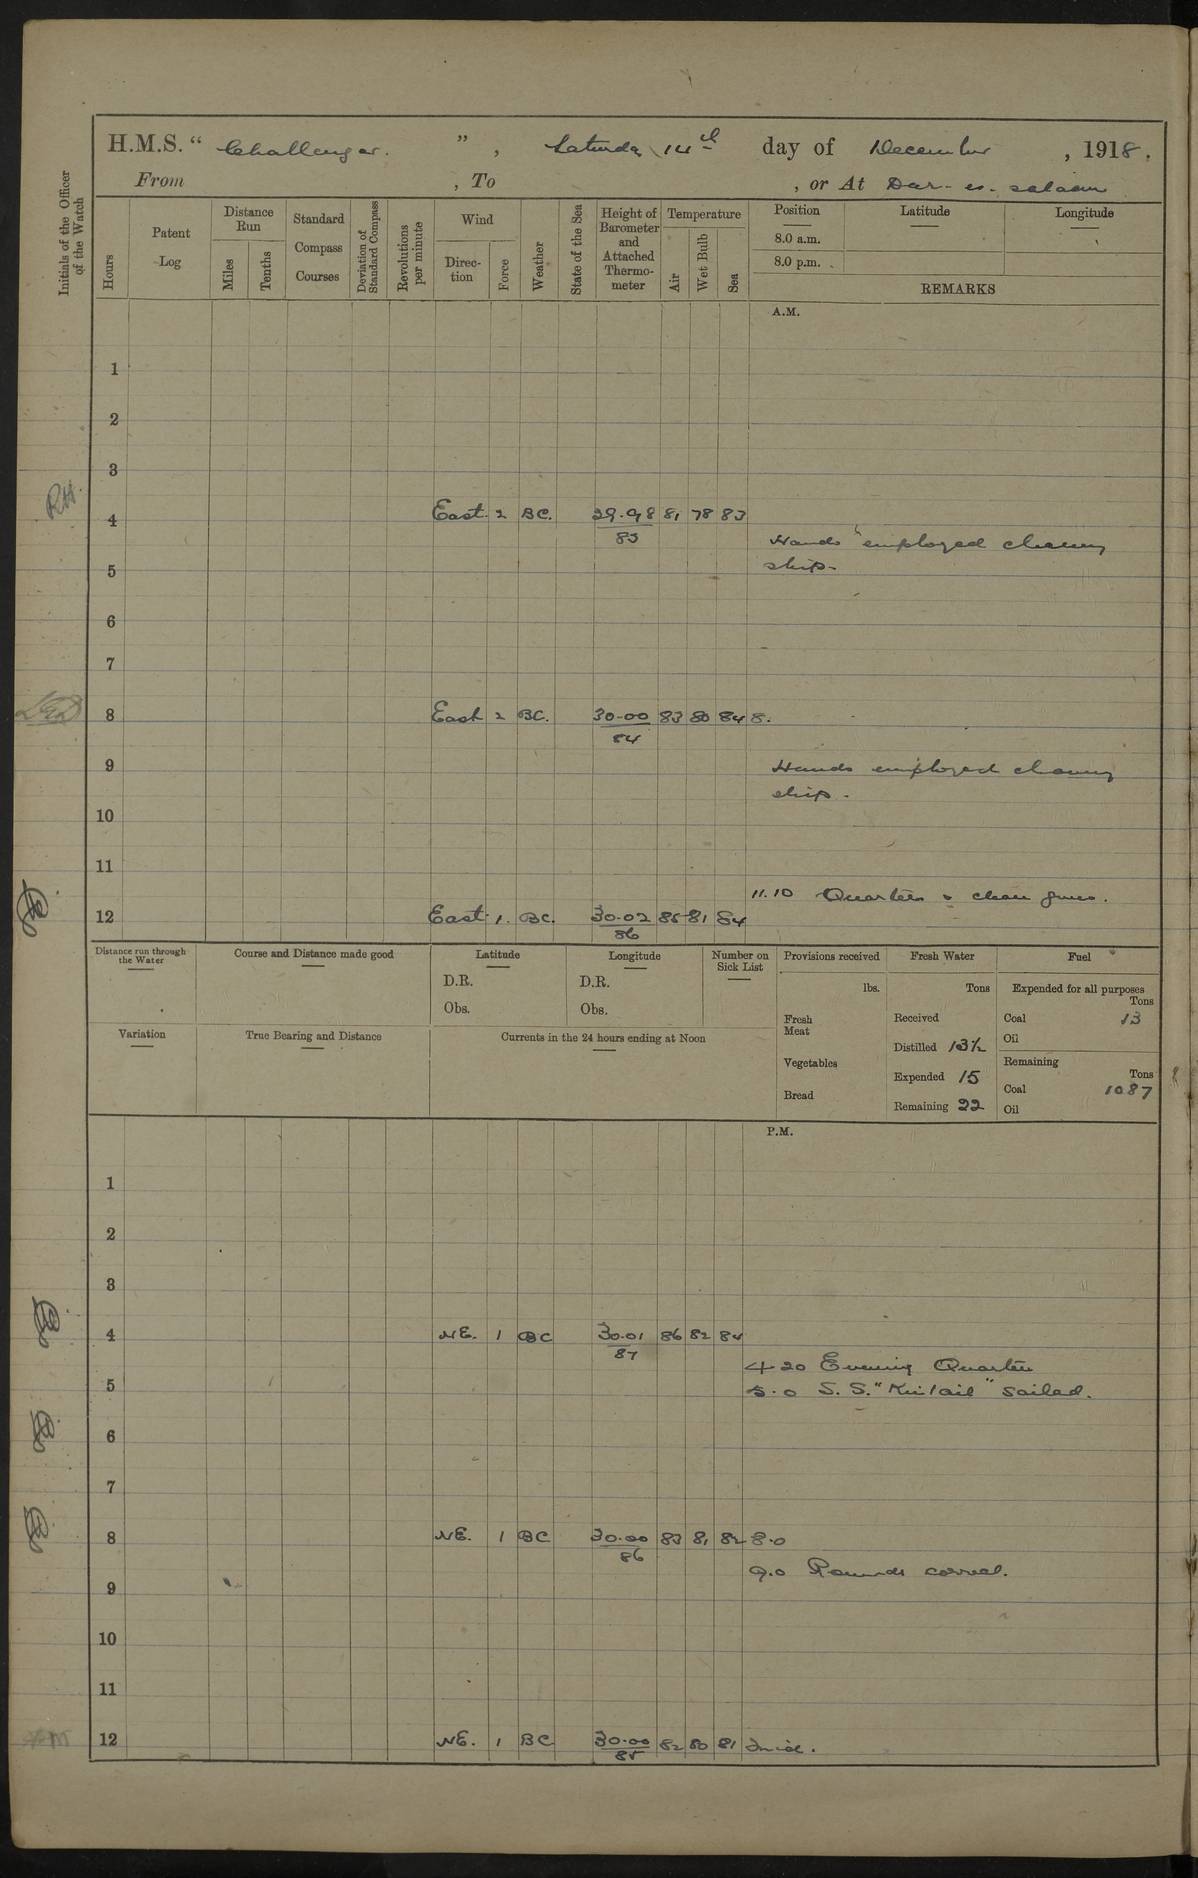 H.M.S. “ Challenger. ” , Saturday 14th day of December , 1918.
From , To , or At Dar-es-salaam
Initials of the Officer of the Watch
Hours
Patent Log
Distance Run
Miles
Tenths
Standard Compass Courses
Deviation of Standard Compass
Revolutions per minute
Wind
Direction
Force
Weather
State of the Sea
Height of Barometer and Attached Thermometer
Temperature
Air
Wet Bulb
Sea
Position
Latitude
Longitude
8.0 a.m.
8.0 p.m.
REMARKS
A.M.
1
2
3
4 East 2 BC. 29.98 81 78 83
83
Hands employed cleaning
ship.
5
6
7
8 East 2 BC. 30.00 83 80 84 8.
84
9 Hands employed cleaning
ship.
10
11
11.10 Quarters & clean guns.
12 East 1. BC. 30.02 85 81 84
86
Distance run through the Water
Course and Distance made good
Latitude
D.R.
Obs.
Longitude
D.R.
Obs.
Number on Sick List
Provisions received
lbs.
Fresh Meat
Vegetables
Bread
Fresh Water
Tons
Received
Distilled 13½
Expended 15
Remaining 22
Fuel
Expended for all purposes
Tons
Coal 13
Oil
Remaining
Tons
Coal 1087
Oil
Variation
True Bearing and Distance
Currents in the 24 hours ending at Noon
P.M.
1
2
3
4 NE. 1 BC 30.01 86 82 84
87
4 20 Evening Quarters
5.0 S.S. "Kintail" sailed.
5
6
7
8 NE. 1 BC 30.00 83 81 82 8.0
86
9.0 Rounds correct.
9
10
11
12 NE. 1 BC 30.00 82 80 81 Mid.
85